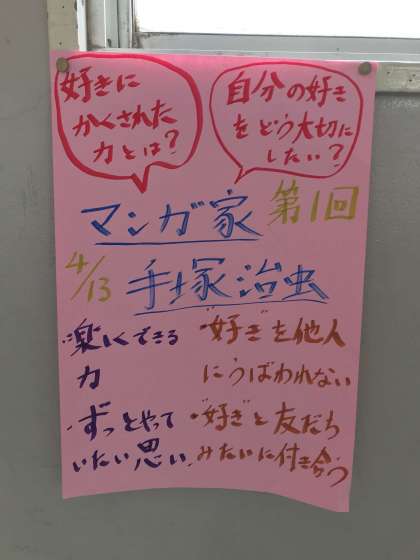 好きに
かくされた
力とは?
自分の好き
をどう大切に
したい?
マンガ家
第1回
4/13
手塚治虫
・楽しくできる
力
・ずっとやって
いたい思い
・"好き"を他人
にうばわれない
・"好き"と友だち
みたいに付き合う